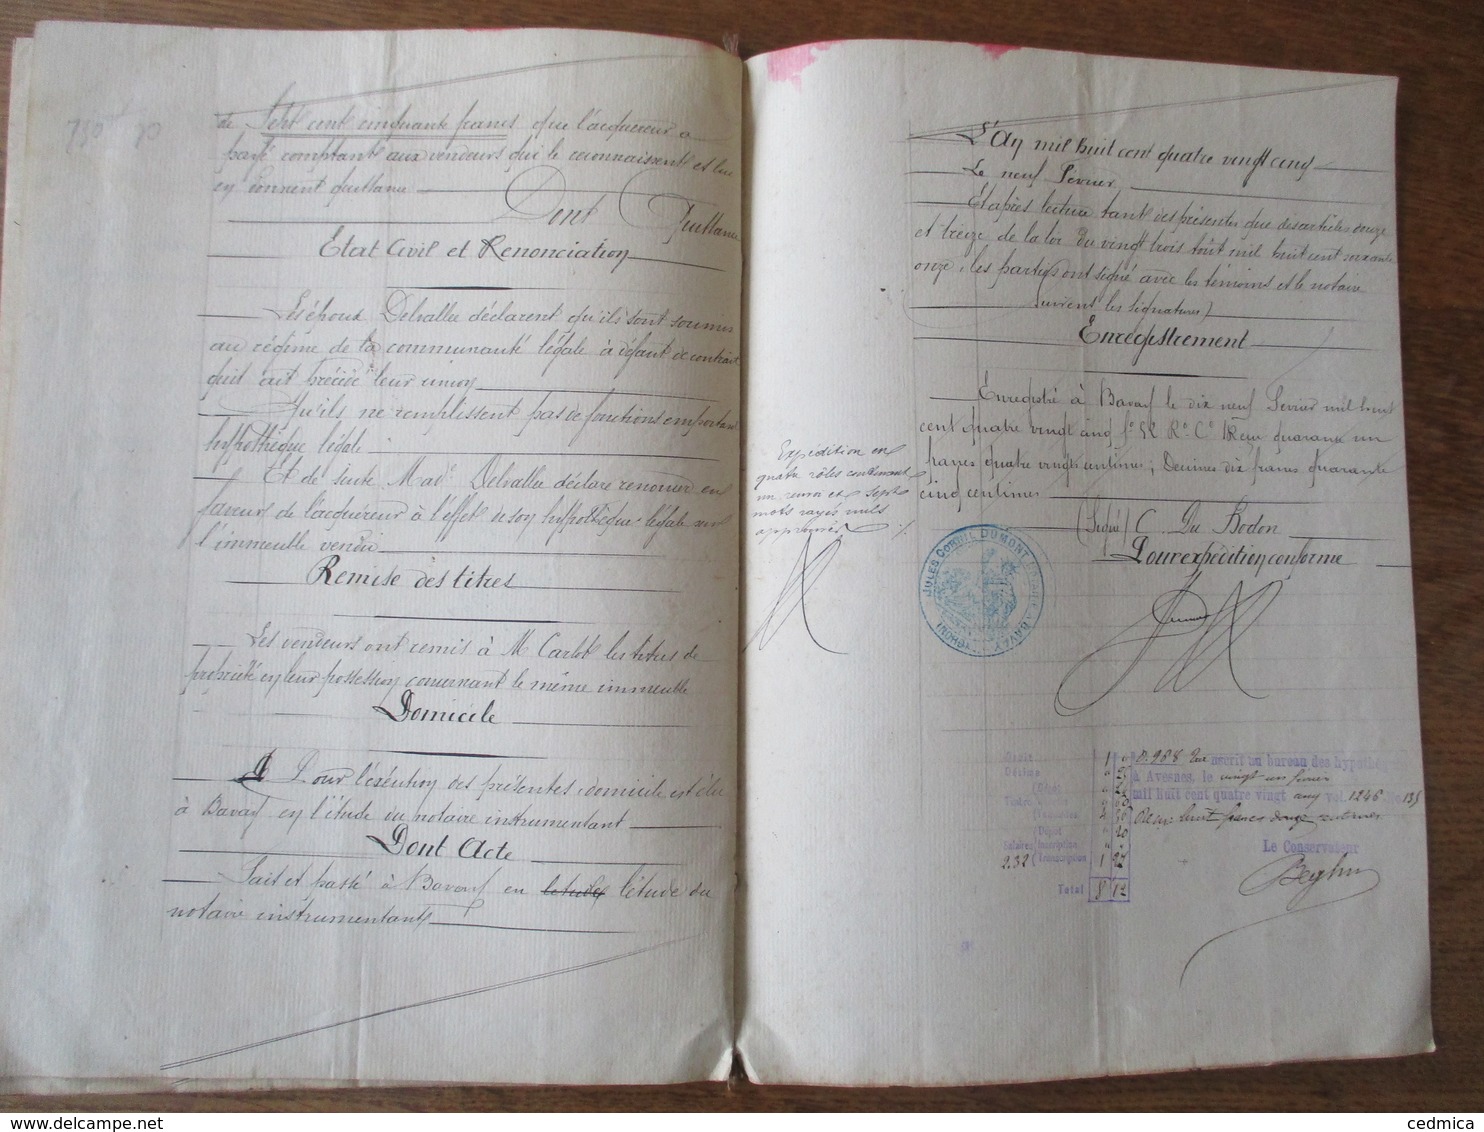 de Sept cent cinquante francs que l'acquéreur a
payé comptant aux vendeurs qui le reconnaissent et lui
en donnent quittance
Dont Quittance
Etat Civil et Renonciation
Les époux Delvallée déclarent qu'ils sont soumis
au régime de la communauté légale à défaut de contrat
qui ait précédé leur union
Qu'ils ne remplissent pas de fonctions emportant
hypothèque légale
Et de suite Mad^e Delvallée déclare renoncer en
faveur de l'acquéreur à l'effet de son hypothèque légale sur
l'immeuble vendu
Remise des titres
Les vendeurs ont remis à M Carlot les titres de
propriété en leur possession concernant le même immeuble
Domicile
Pour l'exécution des présentes, domicile est élu
à Bavay en l'étude du notaire instrumentant
Dont Acte
Fait et passé à Bavay en l'étude du
notaire instrumentant
L'An mil huit cent quatre vingt cinq
Le neuf Février
Et après lecture tant des présentes que des articles douze
et treize de la loi du vingt trois août mil huit cent soixante
onze, les parties ont signé avec les témoins et le notaire
(suivent les signatures)
Enregistrement
Enregistré à Bavay le dix neuf Février mil huit
cent quatre vingt cinq f° 52 R° C° 1 Reçu quarante un
francs quatre vingt centimes; Décimes dix francs quarante
cinq centimes
(Signé) C Du Bodon
Pour expédition conforme
Expédition en
quatre rôles contenant
un renvoi et sept
mots rayés nuls
approuvés
JULES CORNIL DUMONT BAVAY (NORD)
N. 968 Transcrit au bureau des hypothèques
à Avesnes, le vingt un février
mil huit cent quatre vingt cinq Vol. 1246 No. 135
Reçu: huit francs douze centimes
Le Conservateur
Beghin
Salaires
232 Transcription
Total 8 12